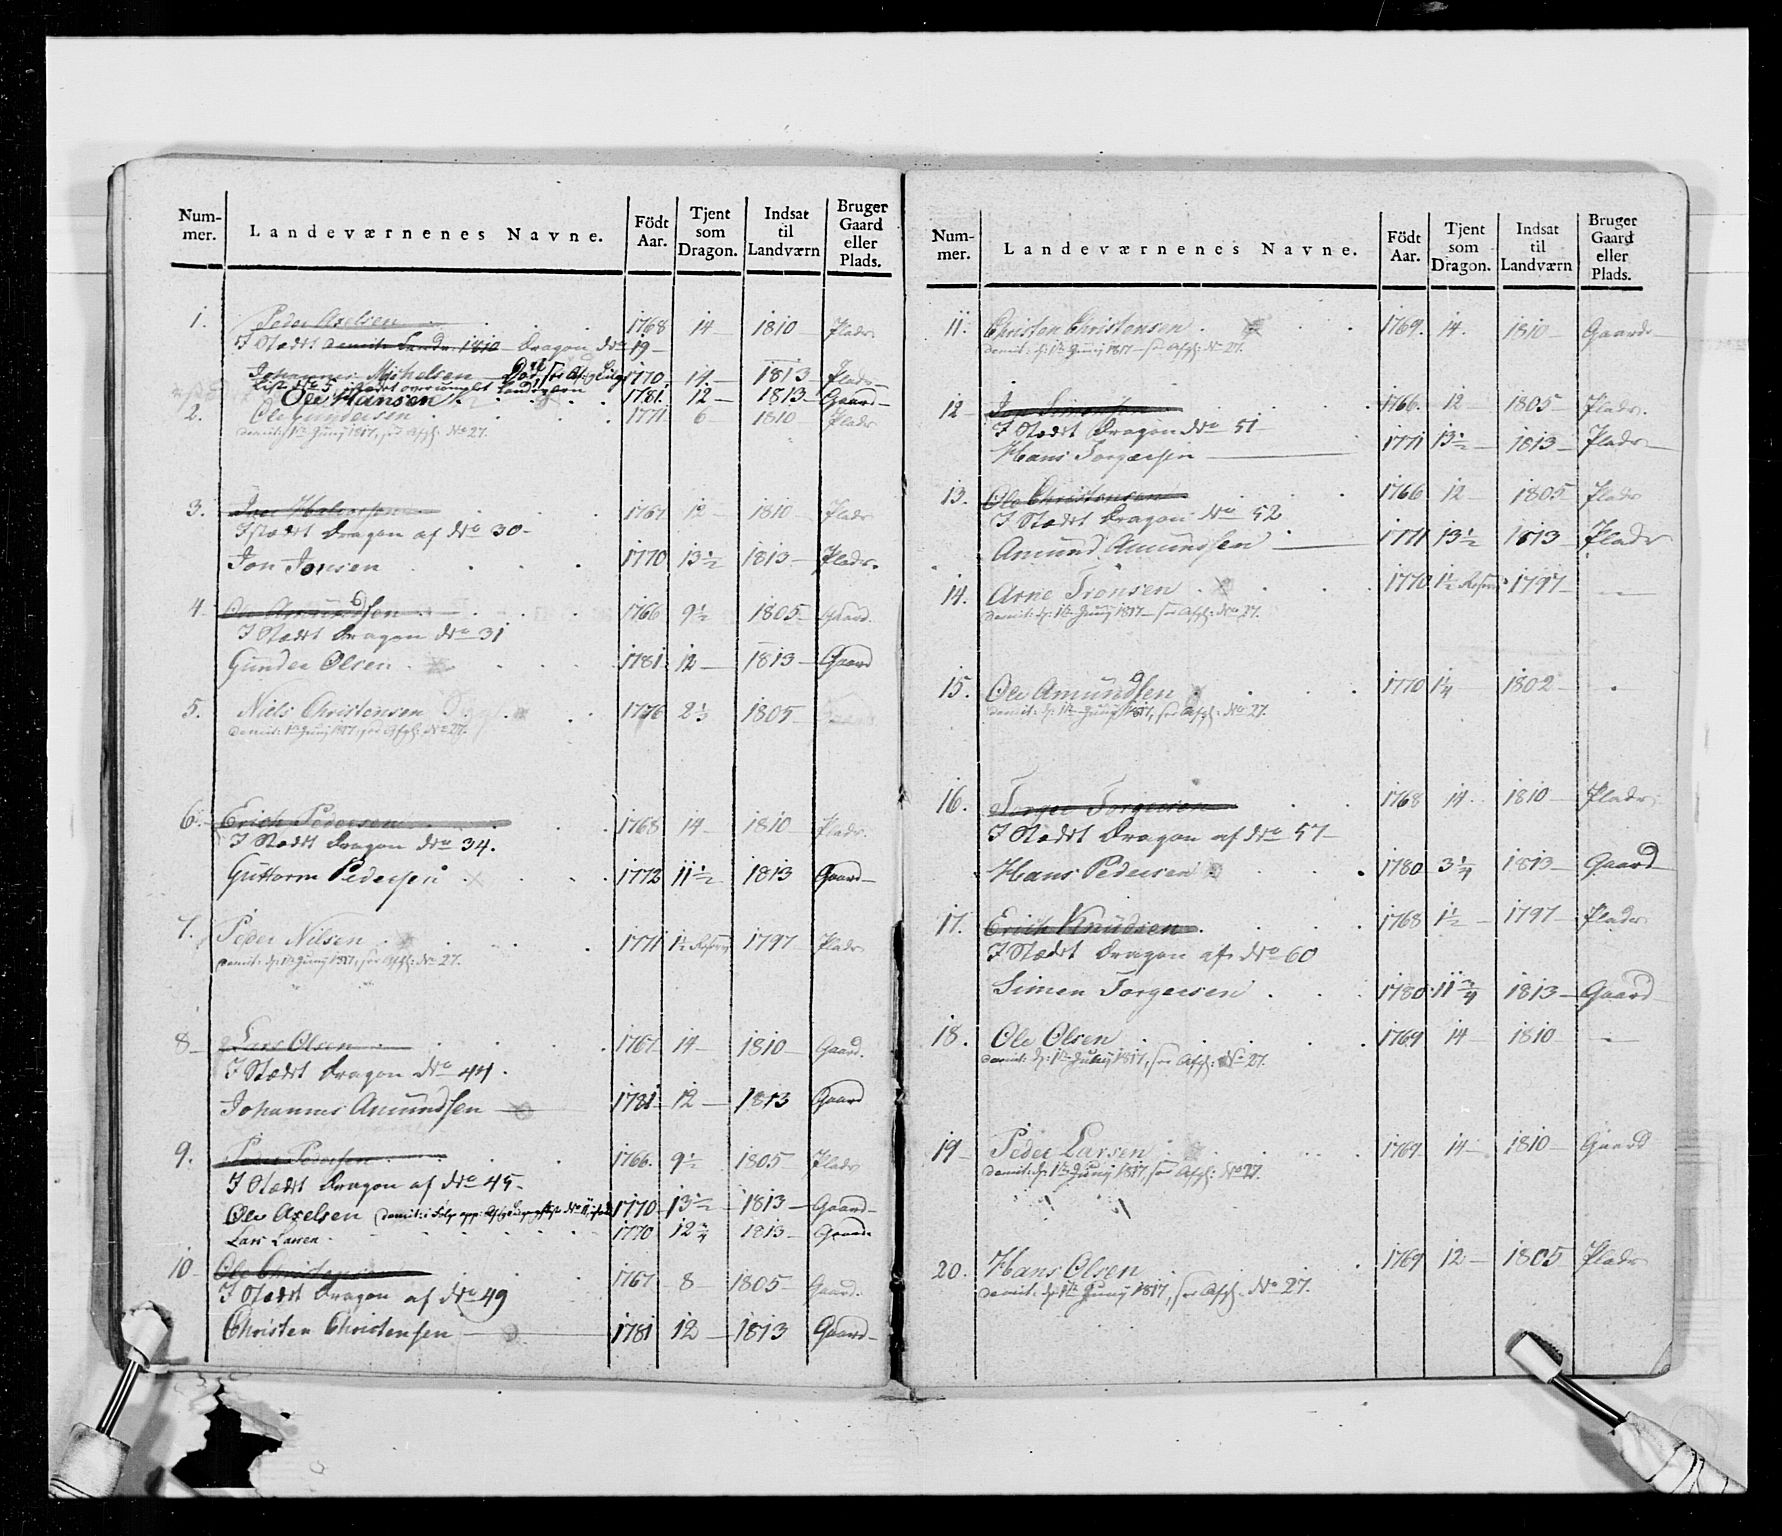 Num-
mer.
Landeværnenes Navne.
Födt
Aar.
Tjent
som
Dragon.
Indsat
til
Landværn
Bruger
Gaard
eller
Plads.
1. Peder Axelsen 1768 14 1810 Plads
I Stædt Dragon No 19
Johannes Michelsen Död 1770 14 1813 Plads
Ole Hansen 1781 12 1813 Gaard
2. Ole 1771 6 1810 Plads
demit: 1te Junij 1817, see Afg: No 27.
3. 1767 12 1810 Plads
I stædt Dragon af No 30
Jon Jonsen 1770 13½ 1813 Plads.
4. Amundsen 1766 9½ 1805 Gaard
I Stædt Dragon No 31
Gunder Olsen 1781 12 1813 Gaard
5. Niels Christensen 1776 2⅓ 1805
demit: 1te Junij 1817, see Afg: No 27.
6. Erich Pedersen 1768 14 1810 Plads.
I Stædt Dragon No 34.
Guttorm Pedersen 1772 11½ 1813 Gaard
7. Peder Nilsen 1771 1½ Reserv 1797 Plads
demit: d: 1te Junij 1817, see Afg: No 27.
8 Lars Olsen 1767 14 1810 Gaard.
I Stædt Dragon No 44.
Johannes Amundsen 1781 12 1813 Gaard
9. Peder Pedersen 1766. 9½ 1805 Plads
I Stædt Dragon af No 45
Ole Axelsen 1770 13½ 1813 Gaard
Lars Larsen 1770 12¾ 1813 Gaard
10 Ole Christensen 1767 8 1805 Gaard.
I Stædt Dragon af No 49
Christen Christensen 1781 12 1813 Gaard
Num-
mer.
Landeværnenes Navne.
Födt
Aar.
Tjent
som
Dragon.
Indsat
til
Landværn
Bruger
Gaard
eller
Plads.
11. Christen Christensen 1769. 14. 1810 Gaard
demit: d: 1te Junij 1817 see Afg: No 27.
12 Simensen 1766. 12 1805 Plads.
I Stædt Dragon No 51
Hans Torgersen 1771 13½ 1813 Plads
13. Ole Christensen 1766 12 1805 Plads
I Stædt Dragon No 52
Amund Amundsen 1771 13½ 1813 Plads
14. Arne Tronsen 1770 1½ Reserv 1797
demit: d: 1te Junij 1817 see Afg: No 27.
15. Ole Amundsen 1770 1¼ 1802
demit: d: 1te Junij 1817, see Afg: No 27.
16. Torger Torgersen 1768 14 1810 Plads
I Stædt Dragon af No 57
Hans Pedersen 1780 3¼ 1813 Gaard
17. Erich Knudsen 1768 1½ 1797 Plads
I Stædt Dragon af No 60
Simen Torgersen 1780 11¾ 1813 Gaard
18. Ole Olsen 1769 14 1810
demit: d: 1te Junij 1817, see Afg: No 27.
19 Peder Larsen 1769 14 1810 Gaard
demit: d: 1te Junij 1817, see Afg: No 27.
20. Hans Olsen 1769 12 1805 Plads
demit: d: 1te Junij 1817, see Afg: No 27.